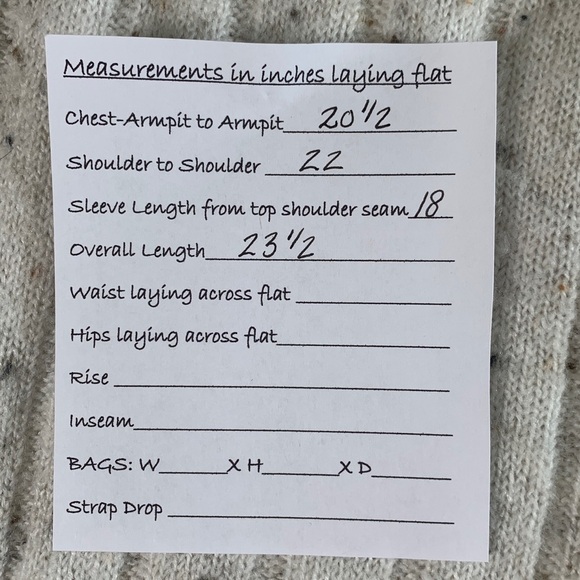 Measurements in inches laying flat
Chest-Armpit to Armpit 20 1/2
Shoulder to Shoulder 22
Sleeve Length from top shoulder seam 18
Overall Length 23 1/2
Waist laying across flat
Hips laying across flat
Rise
Inseam
BAGS: W______X H______X D______
Strap Drop